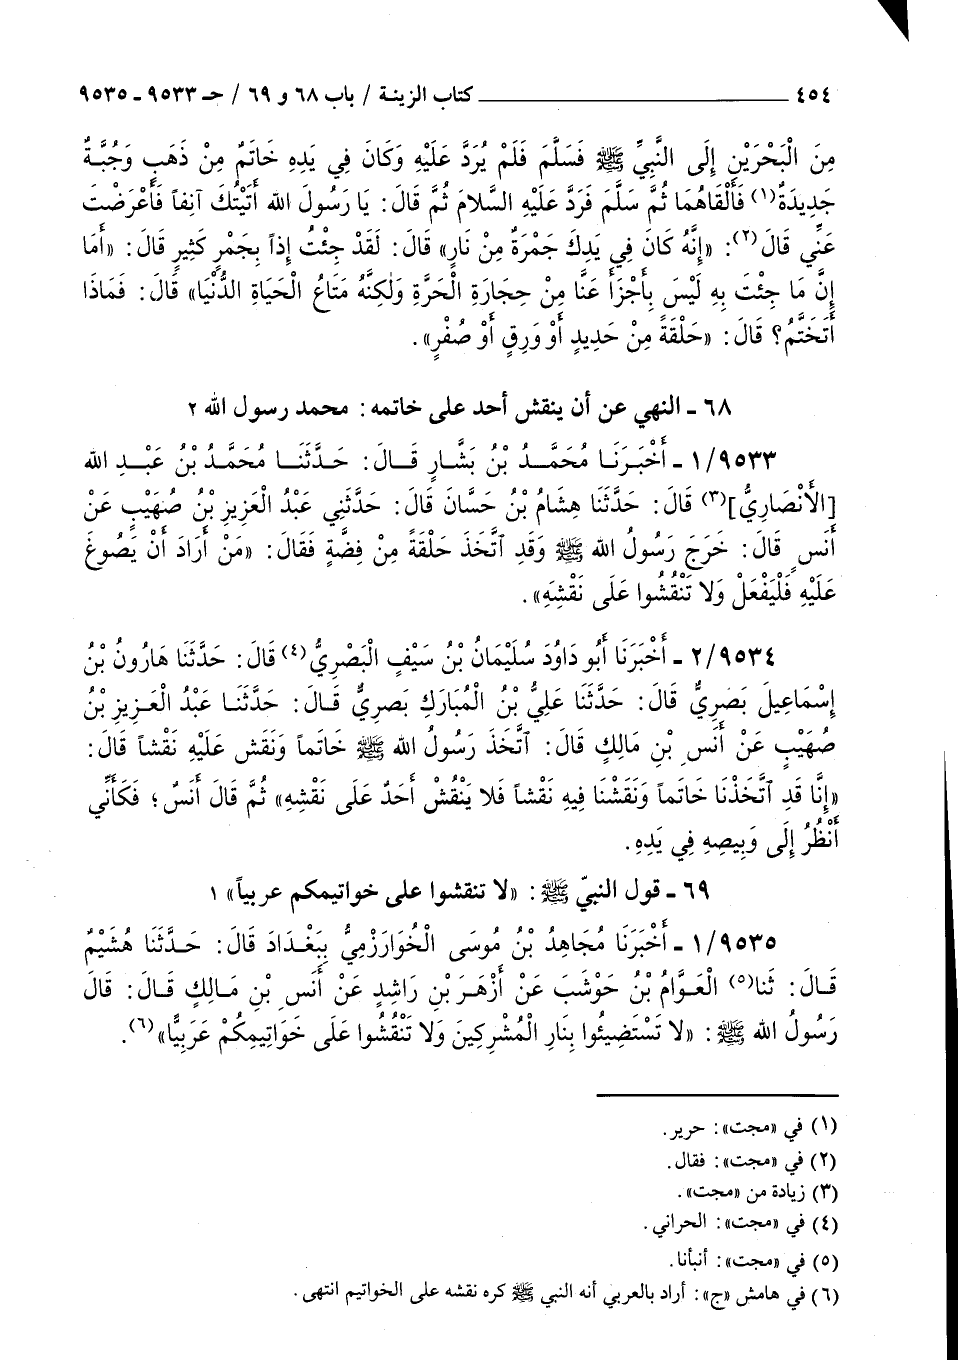 ٤٥٤ كتاب الزينة / باب ٦٨ و ٦٩ / حـ ٩٥٣٣ ـ ٩٥٣٥
مِنَ الْبَحْرَيْنِ إِلَى النَّبِيِّ ﷺ فَسَلَّمَ فَلَمْ يُرَدَّ عَلَيْهِ وَكَانَ فِي يَدِهِ خَاتَمٌ مِنْ ذَهَبٍ وَجُبَّةٌ
جَدِيدَةٌ(١) فَأَلْقَاهُمَا ثُمَّ سَلَّمَ فَرَدَّ عَلَيْهِ السَّلامَ ثُمَّ قَالَ: يَا رَسُولَ الله أَتَيْتُكَ آنِفاً فَأَعْرَضْتَ
عَنِّي قَالَ(٢): «إِنَّهُ كَانَ فِي يَدِكَ جَمْرَةٌ مِنْ نَارٍ» قَالَ: لَقَدْ جِئْتُ إِذاً بِجَمْرٍ كَثِيرٍ قَالَ: «أَمَا
إِنَّ مَا جِئْتَ بِهِ لَيْسَ بِأَجْزَأَ عَنَّا مِنْ حِجَارَةِ الْحَرَّةِ وَلٰكِنَّهُ مَتَاعُ الْحَيَاةِ الدُّنْيَا» قَالَ: فَمَاذَا
أَتَخَتَّمُ؟ قَالَ: «حَلْقَةً مِنْ حَدِيدٍ أَوْ وَرِقٍ أَوْ صُفْرٍ».
٦٨ ـ النهي عن أن ينقش أحد على خاتمه: محمد رسول الله ٢
١/٩٥٣٣ ـ أَخْبَرَنَا مُحَمَّدُ بْنُ بَشَّارٍ قَالَ: حَدَّثَنَا مُحَمَّدُ بْنُ عَبْدِ الله
[الأَنْصَارِيُّ](٣) قَالَ: حَدَّثَنَا هِشَامُ بْنُ حَسَّانَ قَالَ: حَدَّثَنِي عَبْدُ الْعَزِيزِ بْنُ صُهَيْبٍ عَنْ
أَنَسٍ قَالَ: خَرَجَ رَسُولُ الله ﷺ وَقَدِ ٱتَّخَذَ حَلْقَةً مِنْ فِضَّةٍ فَقَالَ: «مَنْ أَرَادَ أَنْ يَصُوغَ
عَلَيْهِ فَلْيَفْعَلْ وَلا تَنْقُشُوا عَلَى نَقْشِهِ».
٢/٩٥٣٤ ـ أَخْبَرَنَا أَبُو دَاوُدَ سُلَيْمَانُ بْنُ سَيْفٍ الْبَصْرِيُّ(٤) قَالَ: حَدَّثَنَا هَارُونُ بْنُ
إِسْمَاعِيلَ بَصْرِيٌّ قَالَ: حَدَّثَنَا عَلِيُّ بْنُ الْمُبَارَكِ بَصرِيٌّ قَالَ: حَدَّثَنَا عَبْدُ الْعَزِيزِ بْنُ
صُهَيْبٍ عَنْ أَنَسِ بْنِ مَالِكٍ قَالَ: ٱتَّخَذَ رَسُولُ الله ﷺ خَاتَماً وَنَقَشَ عَلَيْهِ نَقْشاً قَالَ:
«إِنَّا قَدِ ٱتَّخَذْنَا خَاتَماً وَنَقَشْنَا فِيهِ نَقْشاً فَلا يَنْقُشْ أَحَدٌ عَلَى نَقْشِهِ» ثُمَّ قَالَ أَنَسٌ؛ فَكَأَنِّي
أَنْظُرُ إِلَى وَبِيصِهِ فِي يَدِهِ.
٦٩ ـ قول النبيّ ﷺ: «لا تنقشوا على خواتيمكم عربياً» ١
١/٩٥٣٥ ـ أَخْبَرَنَا مُجَاهِدُ بْنُ مُوسَى الْخُوَارَزْمِيُّ بِبَغْدَادَ قَالَ: حَدَّثَنَا هُشَيْمٌ
قَالَ: ثَنا(٥) الْعَوَّامُ بْنُ حَوْشَبَ عَنْ أَزْهَرَ بْنِ رَاشِدٍ عَنْ أَنَسِ بْنِ مَالِكٍ قَالَ: قَالَ
رَسُولُ الله ﷺ: «لا تَسْتَضِيئُوا بِنَارِ الْمُشْرِكِينَ وَلا تَنْقُشُوا عَلَى خَوَاتِيمِكُمْ عَرَبِيًّا»(٦).
(١) في «مجت»: حرير.
(٢) في «مجت»: فقال.
(٣) زيادة من «مجت».
(٤) في «مجت»: الحراني.
(٥) في «مجت»: أنبأنا.
(٦) في هامش «ج»: أراد بالعربي أنه النبي ﷺ كره نقشه على الخواتيم انتهى.